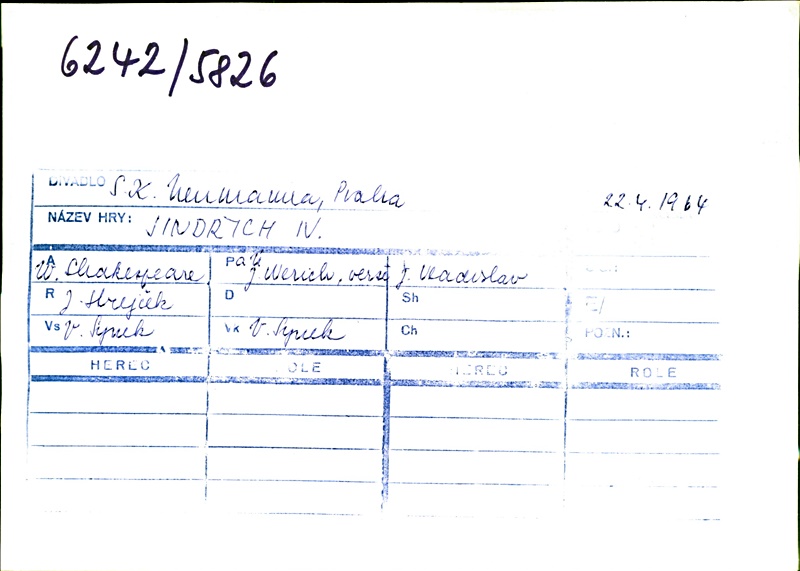 6242/5826
DIVADLO S.K. Neumanna, Praha 22.4.1964
NÁZEV HRY: JINDŘICH IV.
A W. Shakespeare Pa J. Werich, verše J. Vladislav
R J. Strejček D Sh
Vs V. Synek Vk V. Synek Ch POZN.:
HEREC ROLE HEREC ROLE